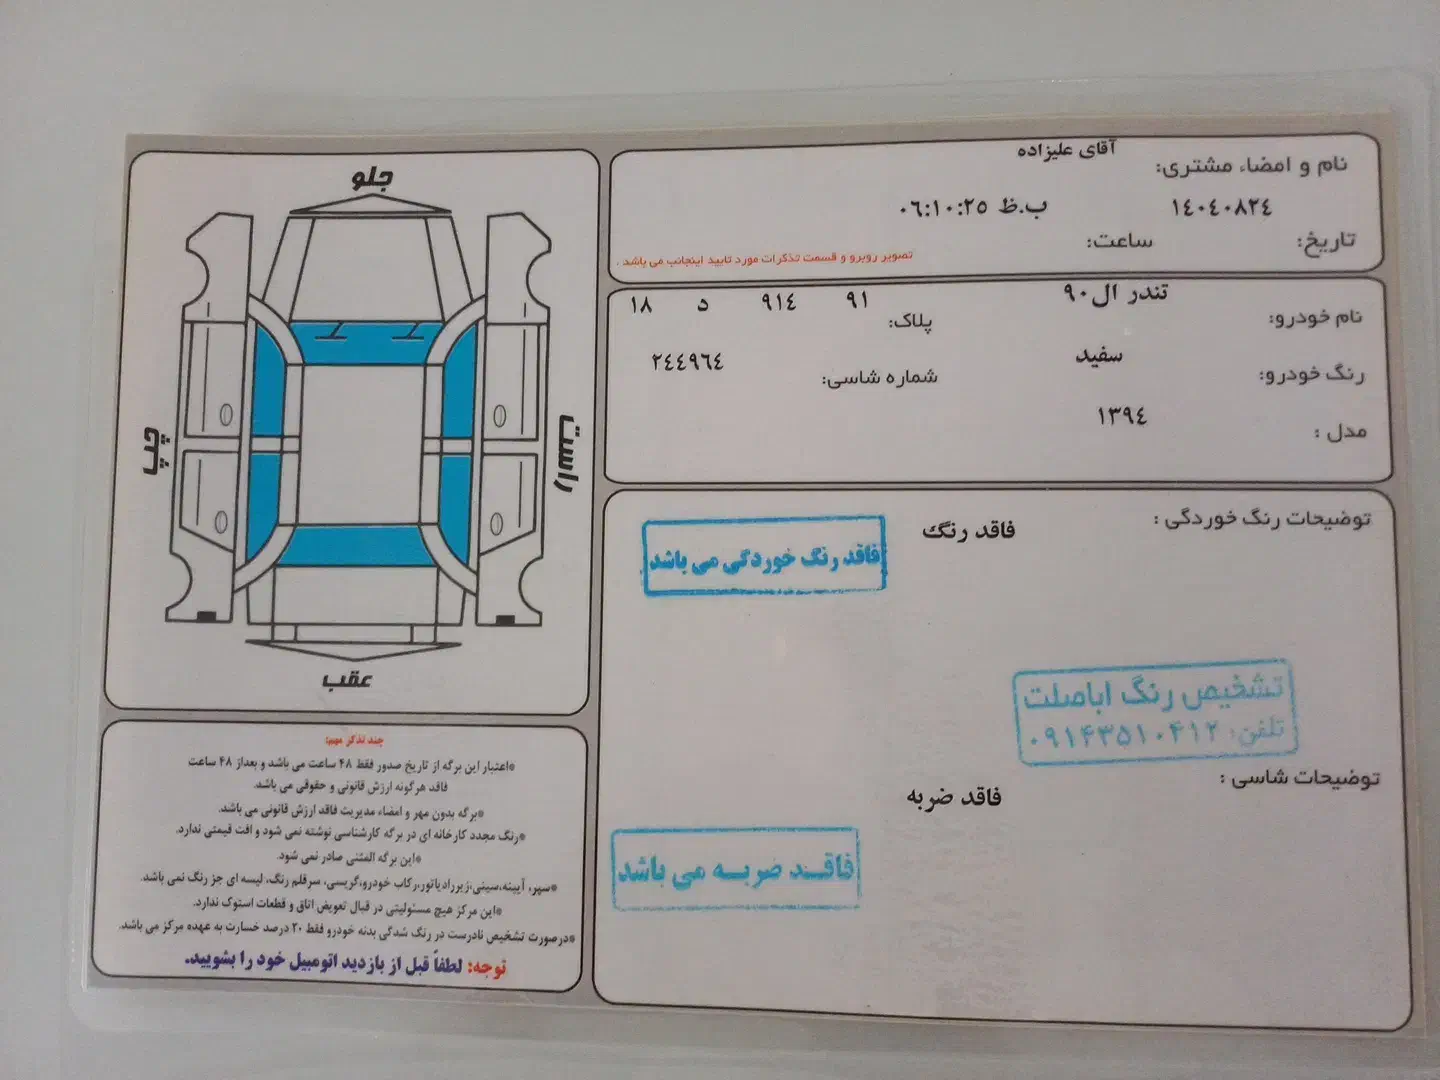 آقای علیزاده
نام و امضاء مشتری:
١٤٠٤٠٨٢٤
ب.ظ ٠٦:١٠:٢٥
تاریخ:
ساعت:
تصویر روبرو و قسمت تذکرات مورد تایید اینجانب می باشد .
تندر ال ٩٠
نام خودرو:
٩١ ٩١٤ د ١٨
پلاک:
سفید
رنگ خودرو:
٢٤٤٩٦٤
شماره شاسی:
١٣٩٤
مدل :
توضیحات رنگ خوردگی :
فاقد رنگ
فاقد رنگ خوردگی می باشد
تشخیص رنگ اباصلت
تلفن: ۰۹۱۴۳۵۱۰۴۱۲
توضیحات شاسی :
فاقد ضربه
فاقد ضربه می باشد
جلو
راست
چپ
عقب
چند تذکر مهم:
*اعتبار این برگه از تاریخ صدور فقط ۴۸ ساعت می باشد و بعداز ۴۸ ساعت
فاقد هرگونه ارزش قانونی و حقوقی می باشد.
*برگه بدون مهر و امضاء مدیریت فاقد ارزش قانونی می باشد.
*رنگ مجدد کارخانه ای در برگه کارشناسی نوشته نمی شود و افت قیمتی ندارد.
*این برگه المثنی صادر نمی شود.
*سپر، آیینه،سینی،زیررادیاتور،رکاب خودرو،گریسی، سرقلم رنگ، لیسه ای جز رنگ نمی باشد.
*این مرکز هیچ مسئولیتی در قبال تعویض اتاق و قطعات استوک ندارد.
*درصورت تشخیص نادرست در رنگ شدگی بدنه خودرو فقط ۲۰ درصد خسارت به عهده مرکز می باشد.
توجه: لطفاً قبل از بازدید اتومبیل خود را بشویید.